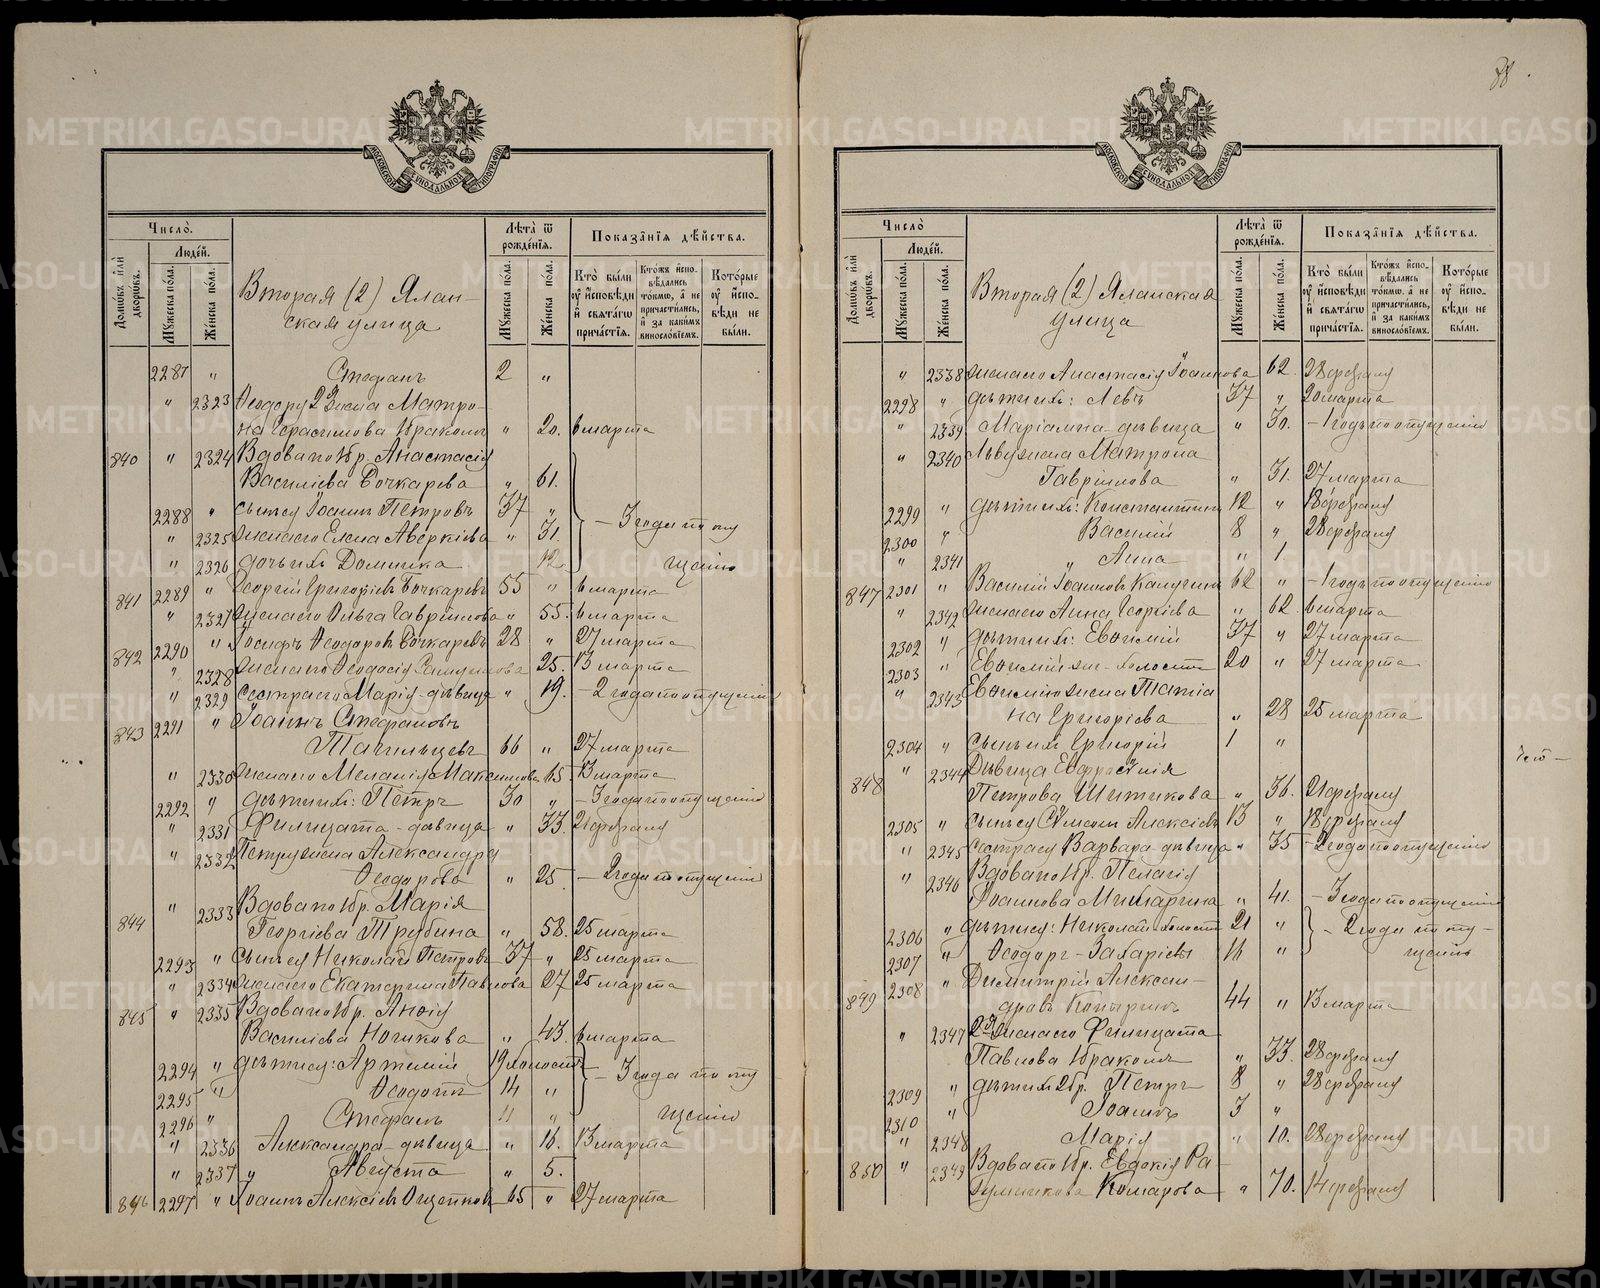 88
МОСКОВСКОЙ СѴНОДАЛЬНОЙ ТИПОГРАФІИ
Число̀.
Людéй.
Домѡ́въ и҆лѝ дворѡ́въ.
Мꙋ́жеска по́ла.
Же́нска по́ла.
Вторая (2) Ялан-
ская улица
Лѣ́та ѿ рожде́нїѧ.
Мꙋ́жеска по́ла.
Же́нска по́ла.
Показа̑нїѧ дѣ́йства.
Кто̀ бы́ли ᲂу҆ и҆́сповѣди и҆ свѧта́гѡ прича́стїѧ.
Кто́жъ и҆спо-вѣ́дались то́кмѡ, а҆ не причасти́лись, и҆ за каки́мъ винословїемъ.
Кото́рые ᲂу҆ и҆спо-вѣ́ди не бы́ли.
2287 " Стефанъ 2 "
" 2323 Ѳеодору 2 3 жена Матро-
на Герасимова 1 бракомъ " 20. 6 марта
840 " 2324 Вдова по 1 бр. Анастасія
Василіева Бочкарева " 61.
2288 " сынъ ея Іоаннъ Петровъ 37 " - 3 года по опу
" 2325 жена его Елена Аверкіева " 31.
" 2326 дочь ихъ Домника 12. щенію
841 2289 " Георгій Григоріевъ Бочкаревъ 55 " 6 марта
" 2327 жена его Ольга Гавриилова " 55. 6 марта
842 2290 " Іосифъ Ѳеодоровъ Бочкаревъ 28 " 27 марта
" 2328 жена его Ѳеодосія 25. 13 марта
" 2329 сестра его Марія - дѣвица " 19. - 2 года по опущенію
843 2291 " Іоаннъ Стефановъ
Тагильцевъ 66 " 27 марта
" 2330 жена его Меланія Максимова 65. 13 марта
2292 " дѣти ихъ: Петръ 30 " - 3 года по опущенію
" 2331 Филицата - дѣвица " 33. 21 февраля
" 2332 Петру жена Александра
Ѳеодорова " 25. - 2 года по опущенію
844 " 2333 Вдова по 1 бр. Марія
Георгіева Трубина " 58. 25 марта
2293 " сынъ ея Николай Петровъ 37 " 25 марта
" 2334 жена его Екатерина Павлова 27 25 марта
845 " 2335 Вдова по 1 бр. Анѳія
Василіева Ногикова " 43. 6 марта
2294 " дѣти ея: Артемій 19 холостъ - 3 года по опу
2295 " Ѳеодотъ 14 "
2296 " Стефанъ 11 " щенію
" 2336 Александра - дѣвица " 16. 13 марта
" 2337 " Августа " 5.
846 2297 " Іоаннъ Алексіевъ Ощепковъ 65 " 27 марта
МОСКОВСКОЙ СѴНОДАЛЬНОЙ ТИПОГРАФІИ
Число̀
Людéй.
Домѡ́въ и҆лѝ дворѡ́въ.
Мꙋ́жеска по́ла.
Же́нска по́ла.
Вторая (2) Яланская
улица
Лѣ́та ѿ рожде́нїѧ.
Мꙋ́жеска по́ла.
Же́нска по́ла.
Показа̑нїѧ дѣ́йства.
Кто̀ бы́ли ᲂу҆ и҆́сповѣди и҆ свѧта́гѡ прича́стїѧ.
Кто́жъ и҆спо-вѣ́дались то́кмѡ, а҆ не причасти́лись, и҆ за каки́мъ винословїемъ.
Кото́рые ᲂу҆ и҆спо-вѣ́ди не бы́ли.
" 2338 жена его Анастасія Іоаннова 62. 28 февраля
2298 " дѣти ихъ: Левъ 37 " 20 марта
" 2339 Маріамна - дѣвица " 30. - 1 годъ по опущенію
" 2340 Льву жена Матрона
Гавриилова " 31. 27 марта
2299 " дѣти ихъ: Константинъ 12 " 18 февраля
2300 " Василій 8 " 28 февраля
" 2341 Анна " 1
847 2301 " Василій Іоанновъ 62 " - 1 годъ по опущенію
" 2342 жена его Анна Георгіева " 62. 6 марта
2302 " дѣти ихъ: Евѳимій 37 " 27 марта
2303 " Евѳимій - холостъ 20 " 27 марта
" 2343 Евѳимію жена Татіа
на Григоріева " 28 25 марта
2304 " сынъ ихъ Григорій 1 "
848 " 2344 Дѣвица Евфросинія
Петрова Шитикова " 36. 21 февраля
2305 " сынъ ея Сѵмеонъ Алексіевъ 13 " 18 февраля
" 2345 сестра ея Варвара - дѣвица " 35 - 2 года по опущенію
" 2346 Вдова по 1 бр. Пелагія
Іоаннова " 41. - 3 года по опущенію
2306 " дѣти ея: Николай - холостъ 21 " - 2 года по опу-
2307 " Ѳеодоръ - Захаріевы 16 " щенію
849 2308 " Димитрій Алексан-
дровъ 44 " 13 марта
" 2347 2 3 жена его Филицата
Павлова 1 бракомъ " 33. 28 февраля
2309 " дѣти ихъ 2 бр. Петръ 8 " 28 февраля
2310 " Іоаннъ 3 "
" 2348 Марія " 10. 28 февраля
850 " 2349 Вдова по 1 бр. Евдокія Ра-
Комарова " 70. 14 февраля